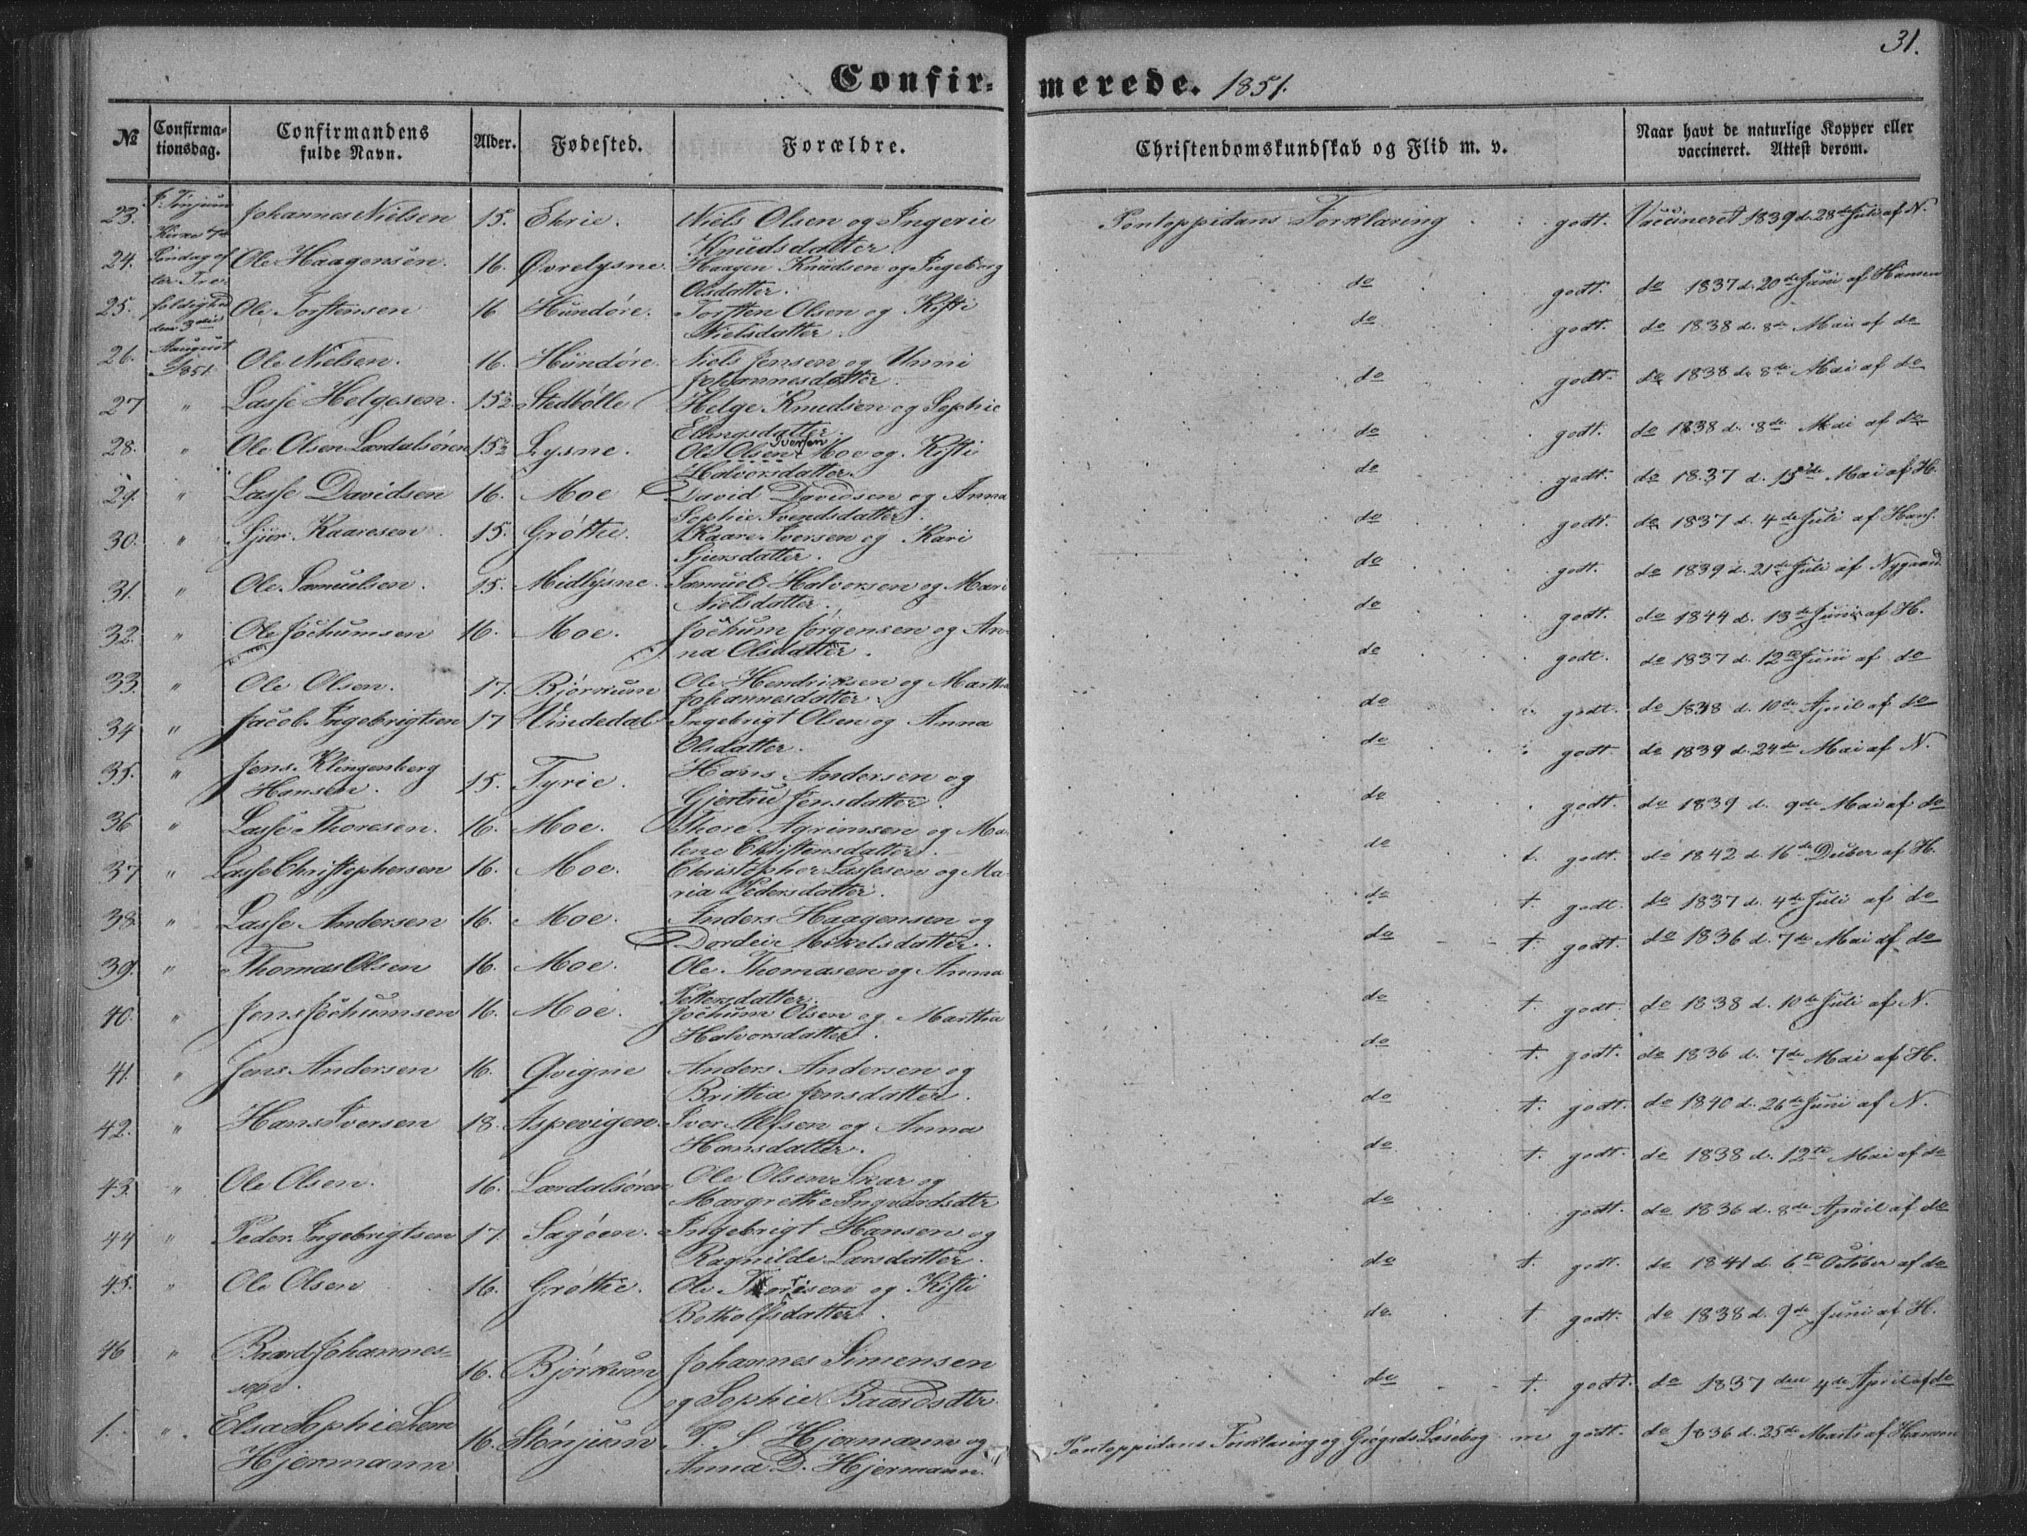 31.
Confir- merede. 1851.
№ Confirma-tionsdag. Confirmandens fulde Navn. Alder. Fødested. Forældre. Christendomskundskab og Flid m. v. Naar havt de naturlige Kopper eller vaccineret. Attest derom.
23. Johannes Nielsen 15. Ehrie. Niels Olsen og Ingerie Knudsdatter. Pontoppidans Forklaring godt. Vaccineret 1839 d. 28de Juli af N.
Kirke
24. Søndag ef- Ole Haagensen. 16. Øvrelysne. Haagen Knudsen og Ingeborg Olsdatter. do godt. do 1837 d. 20de Juni af Hansen
ter Tre-
25. foldighed Ole Torstensen 16 Hundøre. Torsten Olsen og Kisti Nielsdatter. do godt. do 1838 d. 8de Mai af do
den 3die
26. August 1851. Ole Nielsen. 16. Hundøre. Niels Jensen og Unni Johannesdatter. do godt. do 1838 d. 8de Mai af do
27 " Lasse Helgesen. 15½ Stedbølle Helge Knudsen og Sophie Ellingsdatter. do godt. do 1838 d. 8de Mai af do
28. " Ole Olsen Lærdalsøren 15½ Lysne. Ole Olsen Iversen Moe og Kisti Halvorsdatter. do godt. do 1837 d. 15de Mai af H.
29. " Lasse Davidsen 16. Moe David Davidsen og Anna Sophie Svendsdatter. do godt. do 1837 d. 4de Juli af Hans.
30. " Sjur Kaaresen 15. Grøthe. Kaare Iversen og Kari Sjursdatter. do godt. do 1839 d. 21de Juli af Nygaard
31. " Ole Samuelsen. 15. Midlysne. Samuel Halvorsen og Mari Nielsdatter. do godt. do 1844 d. 13de Juni af H.
32. " Ole Jochumsen 16. Moe. Jochum Jørgensen og An-na Olsdatter. do godt. do 1837 d. 12te Juni af do
33. " Ole Olsen. 17. Bjørkum Ole Hendriksen og Martha Johannesdatter do godt. do 1838 d. 10de April af do
34 " Jacob Ingebrigtsen 17 Vindedal Ingebrigt Olsen og Anna Olsdatter. do godt. do 1839 d. 24de Mai af N.
35. " Jens Klingenberg Hansen. 15. Tyrie. Hans Andersen og Gjertru Jensdatter. do godt. do 1839 d. 9de Mai af do
36 " Lasse Thoresen. 16. Moe. Thore Agrimsen og Ma-lene Christensdatter. do t. godt. do 1842 d. 16de Decber af H.
37 " Lasse Christophersen 16. Moe. Christopher Lassesen og Ma-ria Pedersdatter. do t. godt. do 1837 d. 4de Juli af do
38. " Lasse Andersen 16. Moe. Anders Haagensen og Dordeie Mikelsdatter. do t. godt. do 1836 d. 7de Mai af do
39. " Thomas Olsen 16. Moe. Ole Thomasen og Anna Pettersdatter. do t. godt. do 1838 d. 10de Juli af N.
40. " Jens Jochumsen 16. Moe. Jochum Olsen og Martha Halvorsdatter. do t. godt. do 1836 d. 7de Mai af H.
41. " Jens Andersen 16. Qvigne Anders Andersen og Britha Jensdatter. do t. godt. do 1840 d. 26de Juni af N.
42. " Hans Iversen 18. Aspevigen. Iver Alfsen og Anna Hansdatter. do t. godt. do 1838 d. 12te Mai af do
43. " Ole Olsen. 16. Lærdalsøren Ole Olsen Skar og Margrethe Ingvardsdtr do godt. do 1836 d. 8de April af do
44 " Peder Ingebrigtsen 17. Sagøen. Ingebrigt Hansen og Ragnilde Larsdatter. do t. godt. do 1841 d. 6te October af do
45. " Ole Olsen 16. Grøthe. Ole Thoresen og Kisti Botholfsdatter. do t godt. do 1838 d. 9de Juni af H.
46 " Baard Johannes-sen. 16. Bjørkum Johannes Simensen og Sophie Baardsdtr do t. godt. do 1837 den 4de April af do
1. " Elsa Sophie Lem Hjermann 16. Stønjum P. S. Hjermann og Anna D. Hjermann. Pontoppidans Forklaring og Grøgds Læsebog m godt. do 1836 d. 25de Marts af Hansen